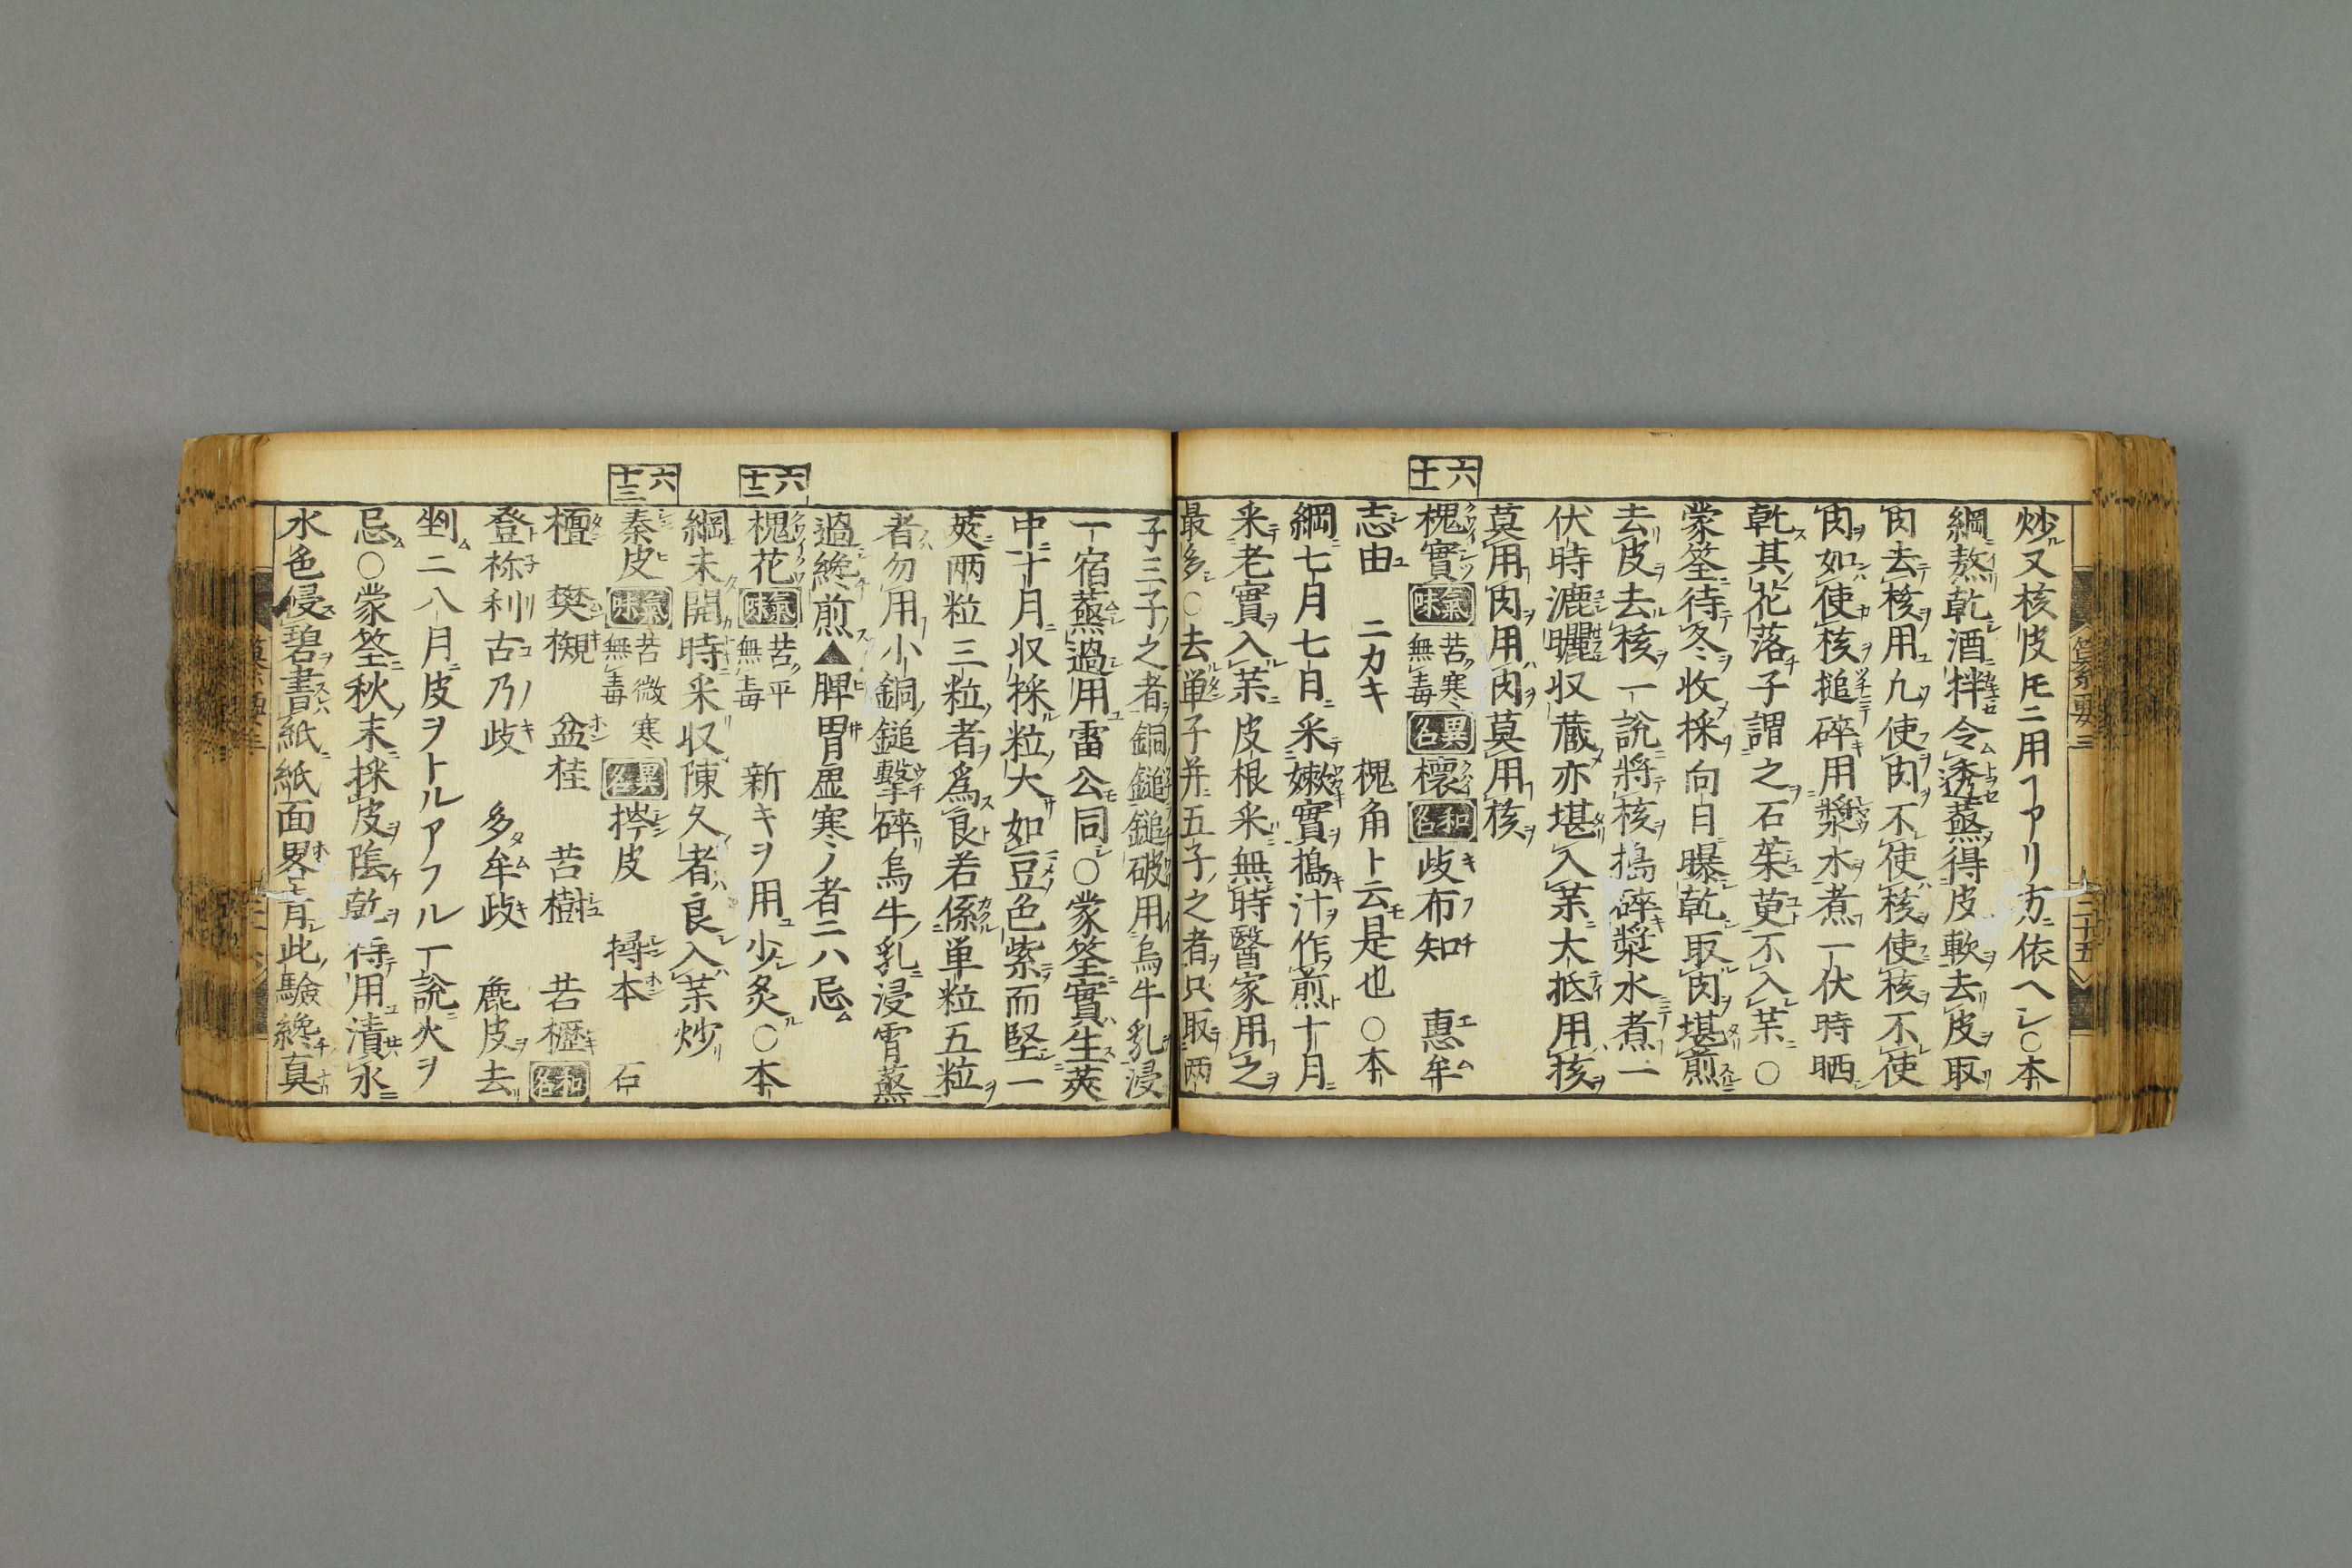 炒又核皮モニ用ヿアリ方ニ依ヘシ○本
綱熬乾酒拌令透蒸得皮軟去皮取
肉去核用凡使肉不使核使核不使
肉如使核搥碎用漿水煮一伏時晒
乾其花落子謂之石茱萸不入藥○
蒙筌待冬收採向日曝乾取肉堪煎
去皮去核一說將核搗碎漿水煮一
伏時漉曬收蔵亦堪入藥大抵用核
莫用肉用肉莫用核
六十一
槐實 氣味 苦寒無毒 異名 櫰 和名 岐布知 惠牟
志由 ニカキ 槐角ト云是也○本
綱七月七日采嫩實搗汁作煎十月
采老實入藥皮根采無時醫家用之
最多○去単子并五子之者只取两
子三子之者銅鎚鎚破用烏牛乳浸
一宿蒸過用雷公同○蒙筌實生莢
中十月収採粒大如豆色紫而堅一
莢两粒三粒者爲良若係単粒五粒
者勿用小銅鎚擊碎烏牛乳浸霄蒸
過纔煎▲脾胃虚寒ノ者ニハ忌
六十二
槐花 氣味 苦平無毒 新キヲ用少炙○本
綱未開時采収陳久者良入藥炒
六十三
秦皮 氣味 苦微寒無毒 異名 梣皮 樳木 石
檀 樊槻 盆桂 苦樹 苦櫪 和名
登祢利古乃歧 多牟歧 鹿皮去
剉二八月皮ヲトルアフル一說火ヲ
忌○蒙筌秋末採皮隂乾待用漬水
水色侵碧書紙紙面畧青此驗纔真
二十五